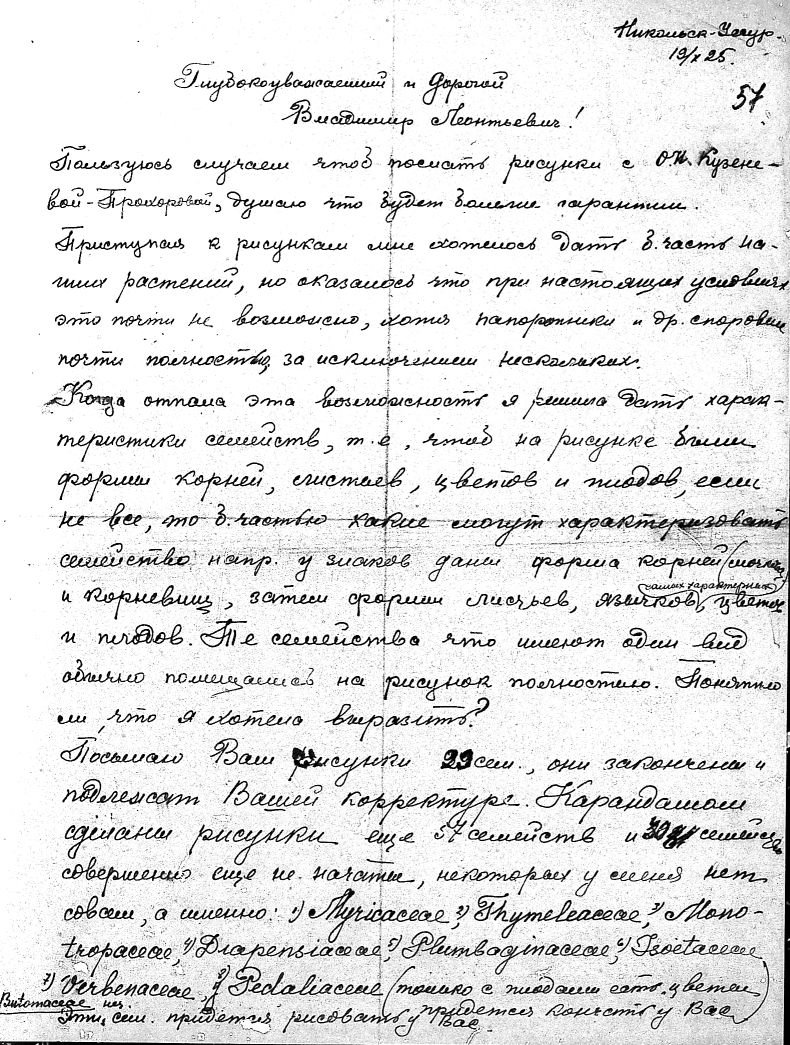 Никольск-Уссур.
19/X 25.
57
Глубокоуважаемый и Дорогой
Владимир Леонтьевич!
Пользуюсь случаем чтоб послать рисунки с О.И. Кузене-
вой-Прохоровой, думаю что будет больше гарантии.
Приступая к рисункам мне хотелось дать б. часть на-
ших растений, но оказалось что при настоящих условиях
это почти не возможно, хотя папоротники и др. споровые
почти полностью, за исключением нескольких.
Когда отпала эта возможность я решила дать харак-
теристики семейств, т.е., чтоб на рисунке были
формы корней, листьев, цветов и плодов, если
не все, то б. частью какие могут характеризовать
семейство напр. у злаков даны форма корней (мочки)
и корневищ, затем формы листьев, язычков (самых характерных), цветов
и плодов. Те семейства что имеют один вид
обычно помещались на рисунок полностью. Понятно
ли, что я хотела выразить?
Посылаю Вам рисунки 29 сем., они закончены и
подлежат Вашей корректуре. Карандашом
сделаны рисунки еще 57 семейств и семейств
совершенно еще не начаты, некоторых у меня нет
совсем, а именно: 1) Myricaceae, 2) Thymeleaceae, 3) Mono-
tropaceae, 4) Diapensiaceae, 5) Plumbaginaceae, 6) Isoetaceae
7) Verbenaceae, 8) Pedaliaceae (только с плодами есть, цветы
придется кончать у Вас)
Butomaceae
Эти сем. придется рисовать у Вас.